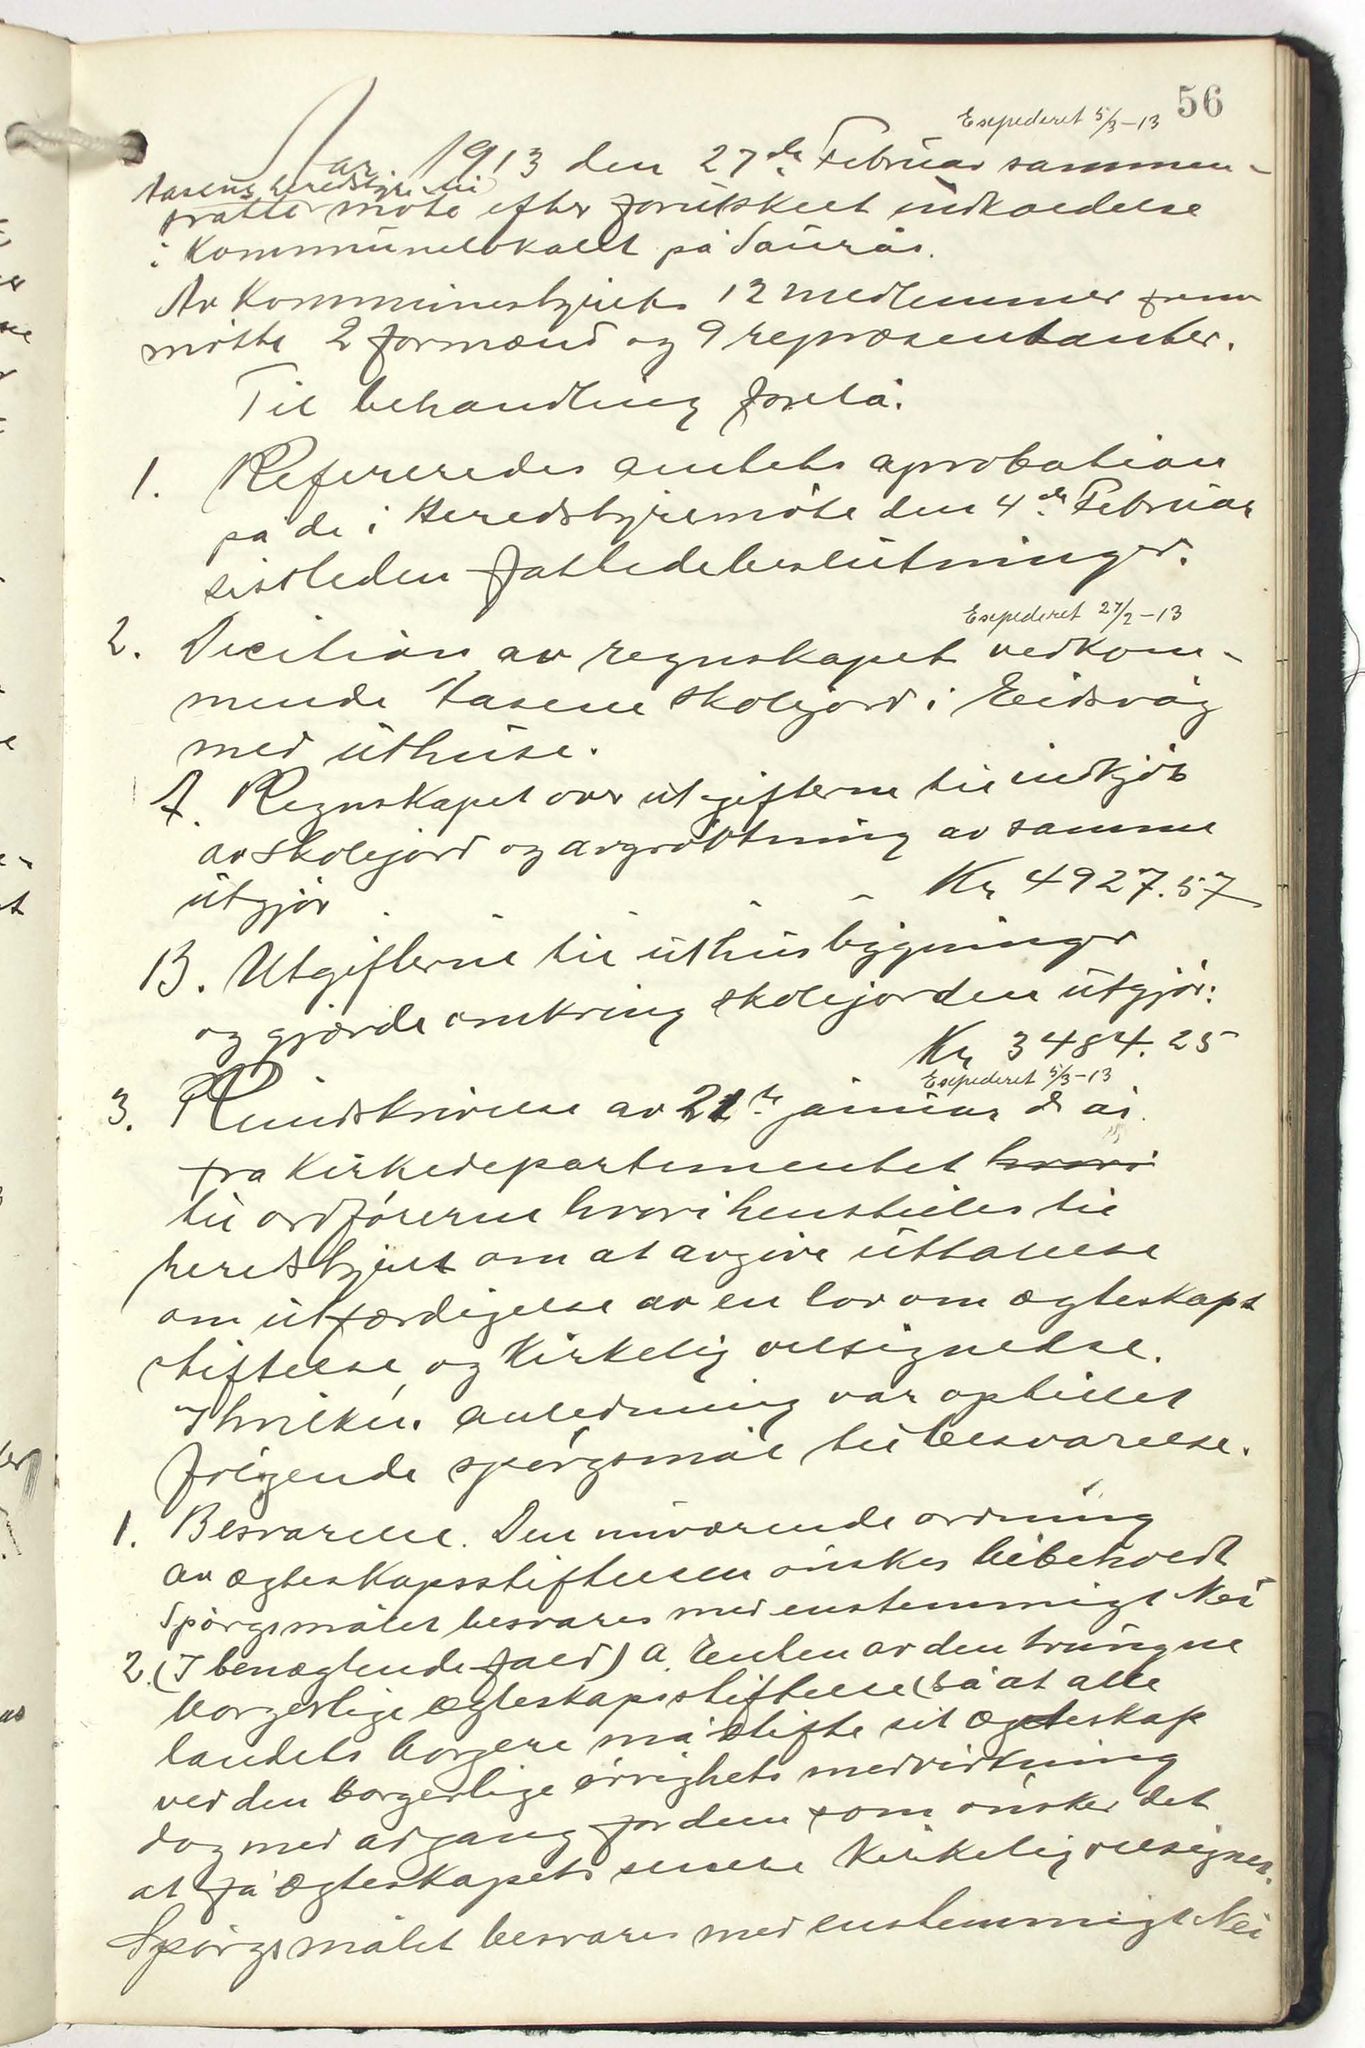 56
Exspederet 5/3-13
Aar 1913 den 27de Februar sammen-
Aasene heredstyre til
tratte møte efter forutskeet indkaldelse
i Kommunelokalet på Saurås.
Av Kommunestyrets 12 medlemmer frem
møtte 2 formænd og 9 repræsentanter.
Til behandling forelå.
1. Refereredes amtets aprobation
på de i Heredstyremøte den 4de Februar
sistleden fattede beslutninger.
Exspederet 27/2-13
2. Decition av regnskapet vedkom-
mende Aasene skolejord i Eidsvåg
med uthuse.
A. Regnskapet over utgifterne til indkjøb
av skolejord og avgrøftning av samme
utgjør Kr 4927.57
B. Utgifterne til uthusbygninger
og gjærde omkring skolejorden utgjør:
Kr 3484.25
Exspederet 5/3-13
3. Rundskrivelse av 21de januar d. år.
fra Kirkedepartementet hvori
til ordførerne hvori henstilles til
heredstyret om at avgive uttalelse
om utfærdigelse av en lov om ægteskaps
stiftelse og Kirkelig velsignelse.
I hvilken anledning var opstillet
følgende spørgsmål til besvarelse.
1. Besvarelse. Den nuværende ordning
av ægteskapsstiftelsen ønskes bibeholdt
Spørgsmålet besvares med enstemmigt Nei
2. (I benægtende fald) a. Enten av den tvungne
borgerlige ægteskapsstiftelse (så at alle
landets borgere må stifte sit ægteskap
ved den borgerlige øvrighets medvirkning
dog med adgang for dem som ønsker det
at få ægteskapets senere Kirkelig velsignes.
Spørgsmålet besvares med enstemmigt Nei